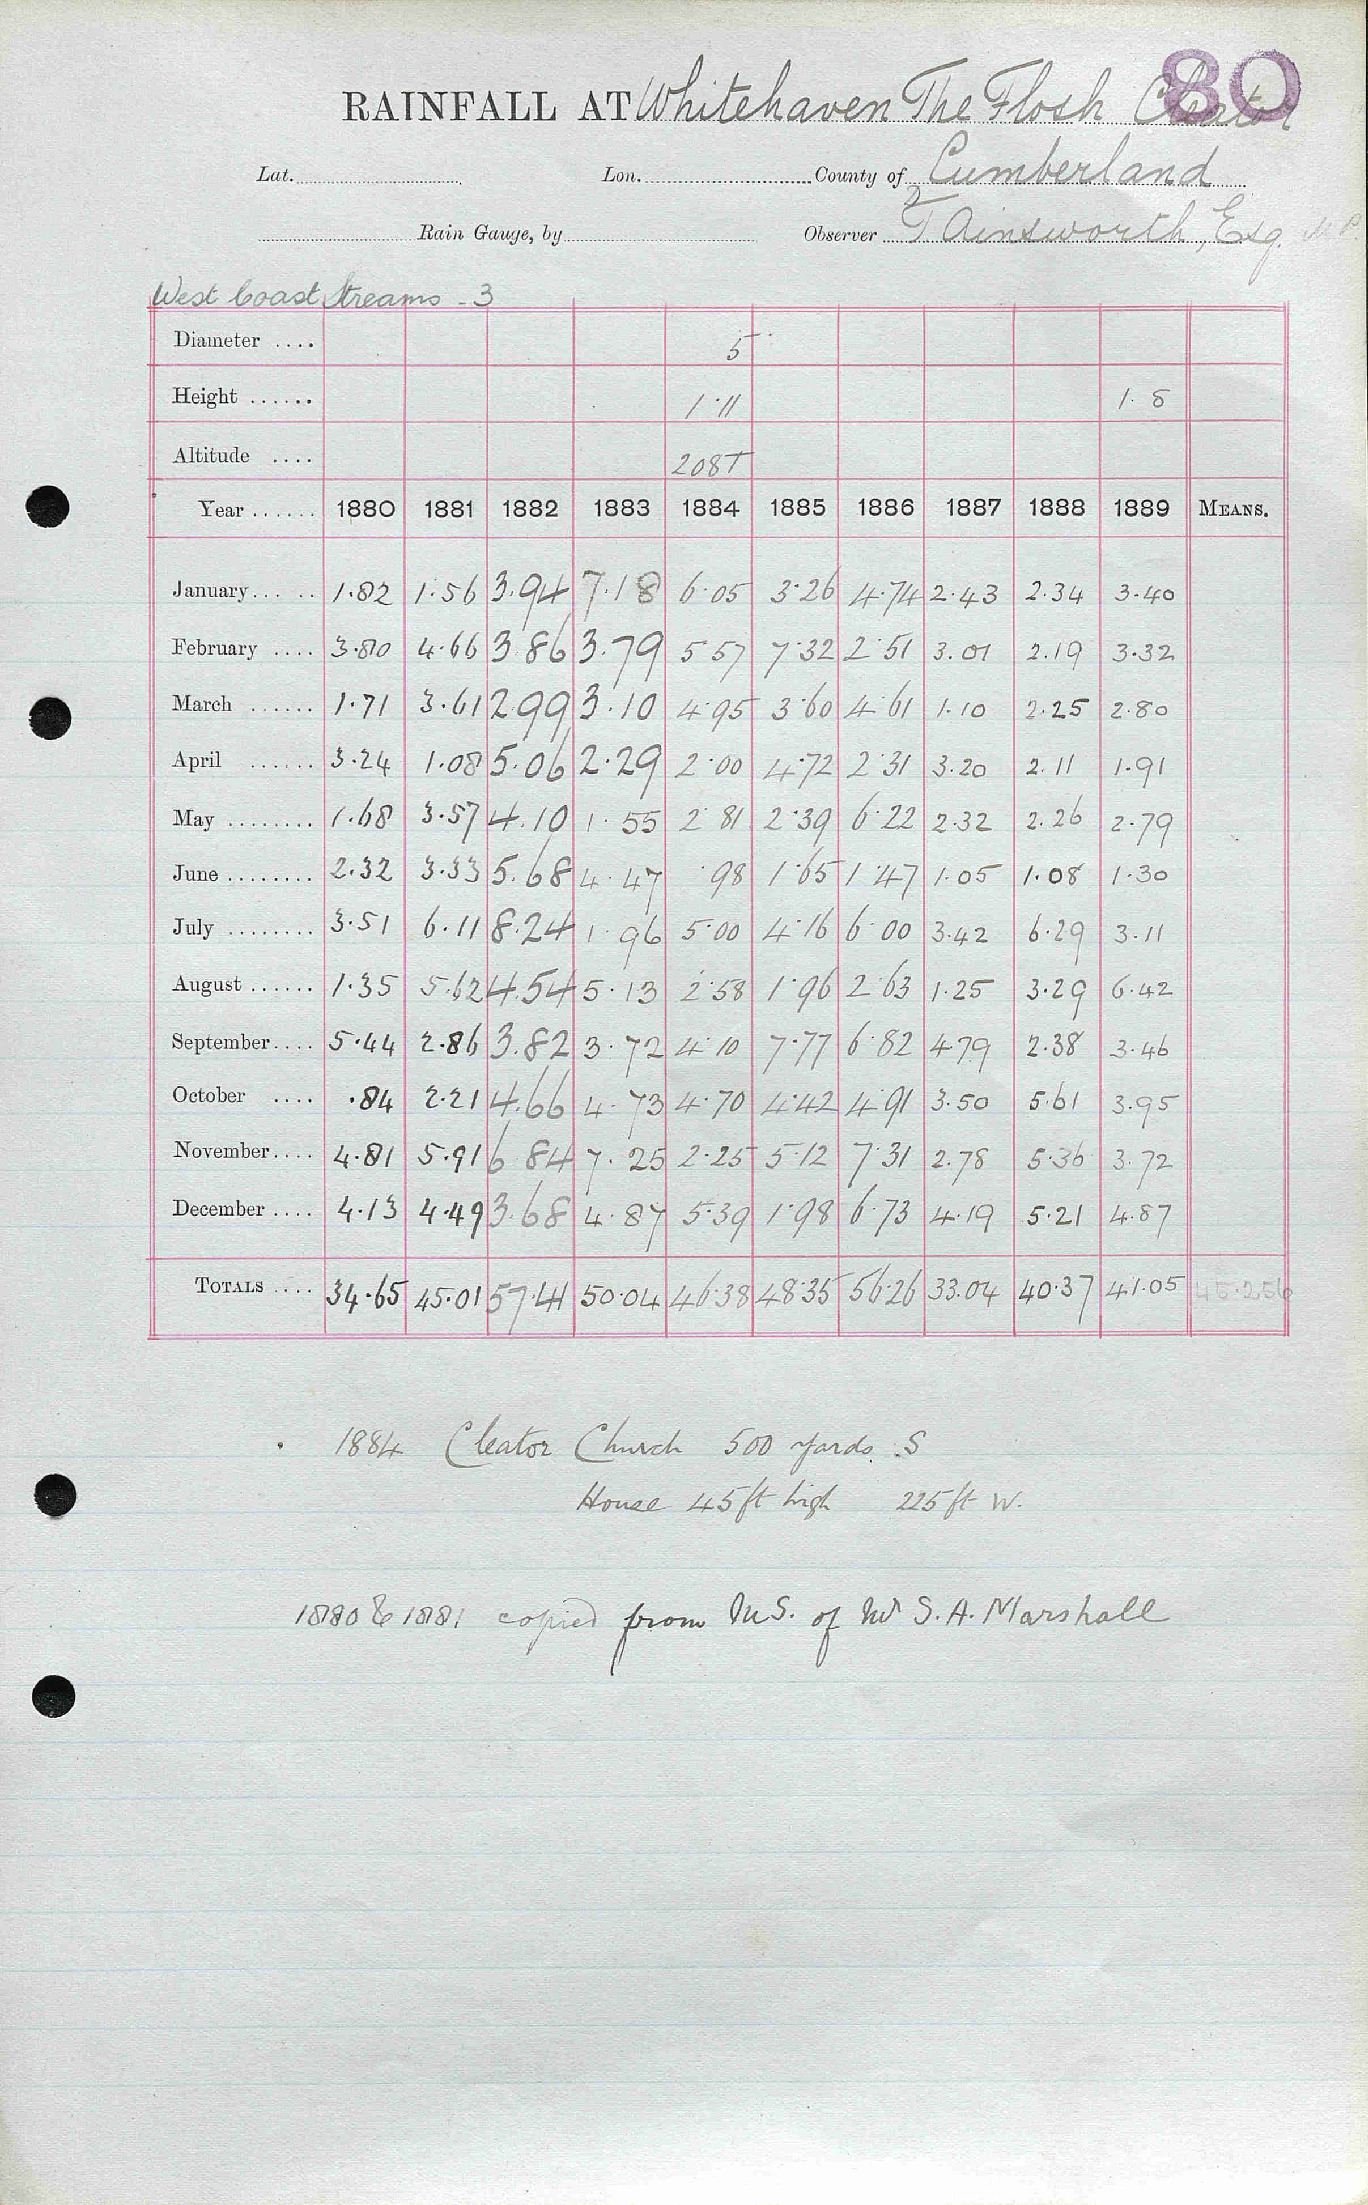 80
RAINFALL AT Whitehaven The Flosh Cleator
Lat. Lon. County of Cumberland
Rain Gauge, by Observer T Ainsworth, Esq. M.P.
West Coast Streams - 3
Diameter .... 5
Height ...... 1·11 1·8
Altitude .... 208T
Year ...... 1880 1881 1882 1883 1884 1885 1886 1887 1888 1889 MEANS.
January... .. 1·82 1·56 3.94 7.18 6·05 3·26 4·74 2·43 2·34 3·40
February .... 3·80 4·66 3 86 3.79 5 57 7·32 2·51 3.01 2.19 3·32
March ...... 1·71 3·61 2.99 3.10 4·95 3·60 4·61 1·10 2·25 2·80
April ...... 3·24 1·08 5.06 2·29 2·00 4·72 2·31 3·20 2·11 1·91
May ........ 1·68 3·57 4.10 1·55 2·81 2·39 6·22 2·32 2·26 2·79
June ........ 2·32 3·33 5.68 4·47 ·98 1·65 1·47 1·05 1·08 1·30
July ........ 3·51 6·11 8.24 1·96 5·00 4·16 6·00 3·42 6·29 3·11
August ...... 1·35 5·62 4.54 5·13 2·58 1·96 2·63 1·25 3·29 6·42
September.... 5·44 2·86 3.82 3·72 4·10 7·77 6·82 4·79 2·38 3·46
October .... ·84 2·21 4.66 4·73 4·70 4·42 4·91 3·50 5·61 3·95
November.... 4·81 5·91 6 84 7·25 2·25 5·12 7·31 2·78 5·36 3·72
December .... 4·13 4·49 3·68 4·87 5·39 1·98 6·73 4·19 5·21 4·87
TOTALS .... 34·65 45·01 57·41 50·04 46·38 48·35 56·26 33·04 40·37 41·05 45·256
1884 Cleator Church 500 yards S
House 45 ft high 225 ft W.
1880 & 1881 copied from M.S. of Mr S. A. Marshall